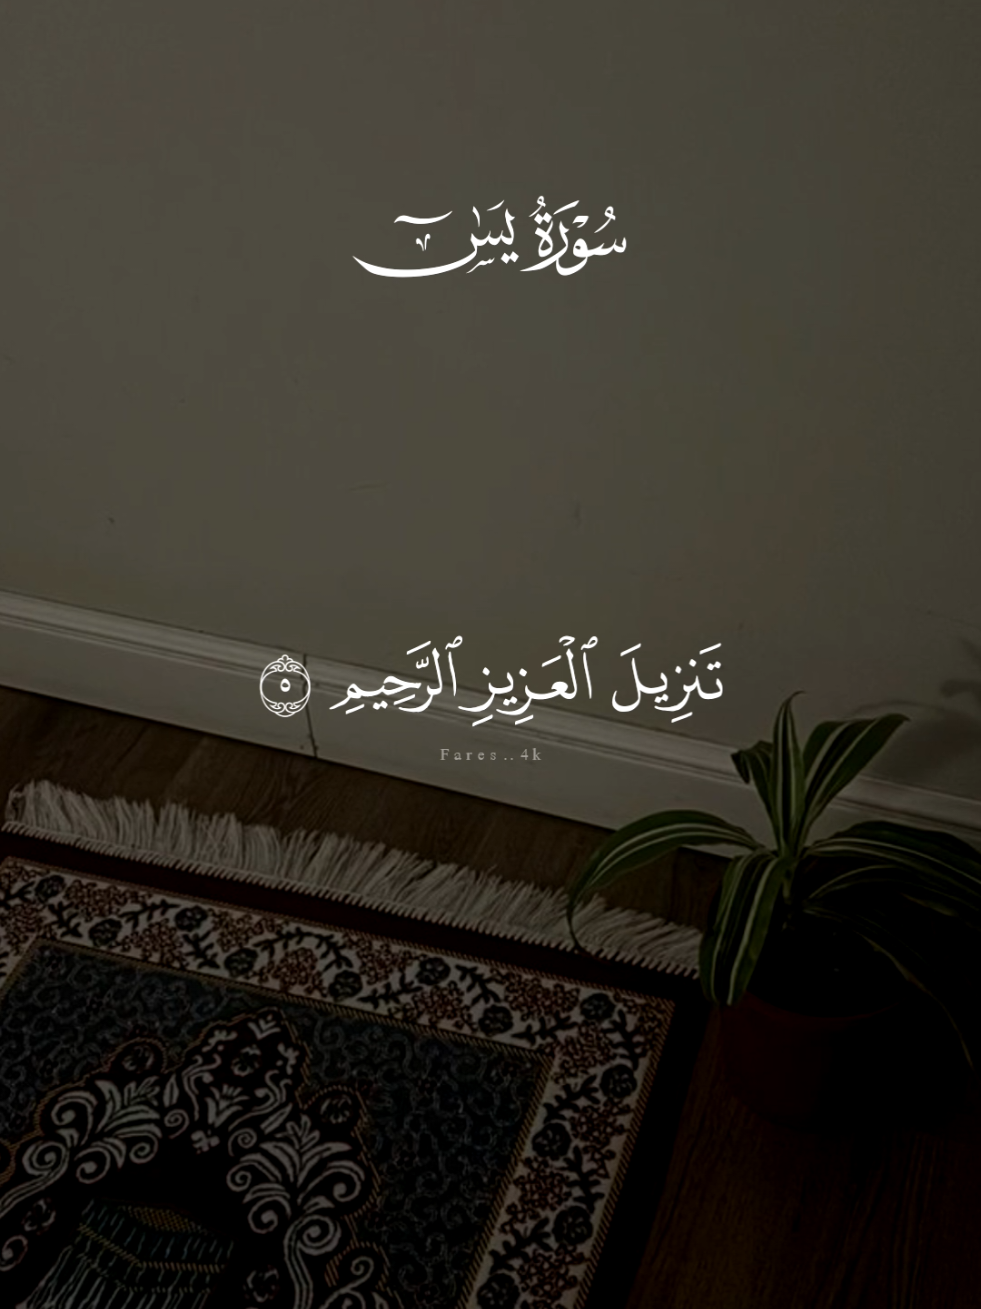 سُوْرَةُ يسٓ
تَنزِيلَ ٱلْعَزِيزِ ٱلرَّحِيمِ ٥
Fares..4k